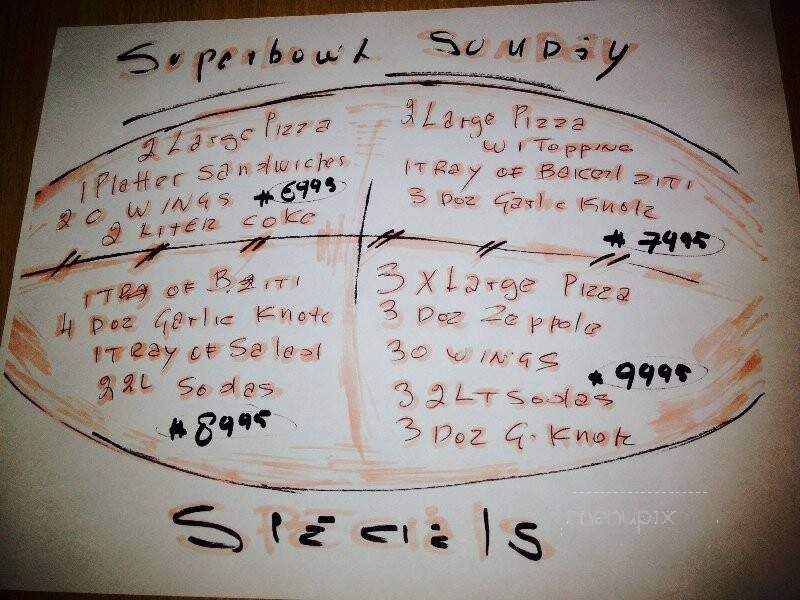 Superbowl Sunday
2 Large Pizza
1 Platter Sandwiches
20 WINGS #6995
2 LITER COKE
2 Large Pizza
w 1 Topping
1 TRAY OF BAKED ZITI
3 Doz Garlic Knots
#7495
1 TRAY OF B. ZITI
4 Doz Garlic Knots
1 TRAY of Salad
2 2L Sodas
#8995
3 X Large Pizza
3 Doz Zeppole
30 WINGS
#9995
3 2 LT Sodas
3 Doz G. Knots
Specials
menupix